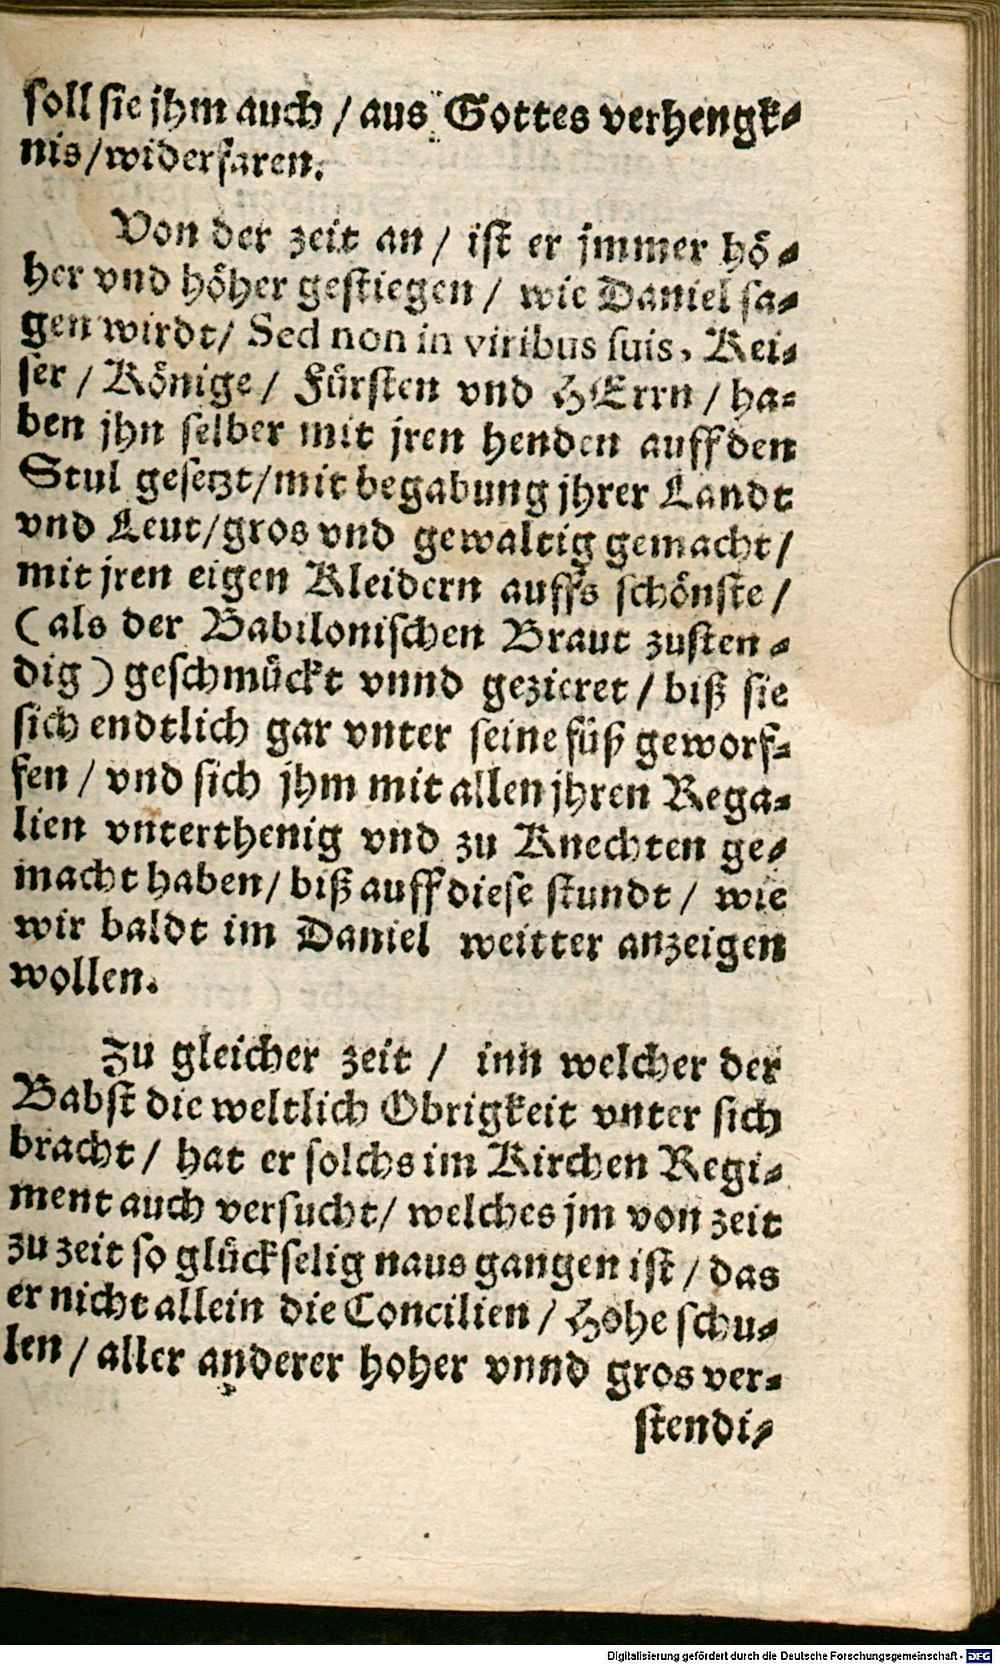 soll sie jhm auch / aus Gottes verhengk-
nis / widerfaren.
Von der zeit an / ist er jmmer hö-
her vnd höher gestiegen / wie Daniel sa-
gen wirdt / Sed non in viribus suis, Kei-
ser / Könige / Fürsten vnd HErrn / ha-
ben jhn selber mit jren henden auff den
Stul gesetzt / mit begabung jhrer Landt
vnd Leut / gros vnd gewaltig gemacht /
mit jren eigen Kleidern auffs schönste /
(als der Babilonischen Braut zusten-
dig) geschmückt vnnd gezieret / biß sie
sich endtlich gar vnter seine füß geworf-
fen / vnd sich jhm mit allen jhren Rega-
lien vnterthenig vnd zu Knechten ge-
macht haben / biß auff diese stundt / wie
wir baldt im Daniel weitter anzeigen
wollen.
Zu gleicher zeit / inn welcher der
Babst die weltlich Obrigkeit vnter sich
bracht / hat er solchs im Kirchen Regi-
ment auch versucht / welches jm von zeit
zu zeit so glückselig naus gangen ist / das
er nicht allein die Concilien / Hohe schu-
len / aller anderer hoher vnnd gros ver-
stendi-
Digitalisierung gefördert durch die Deutsche Forschungsgemeinschaft - DFG